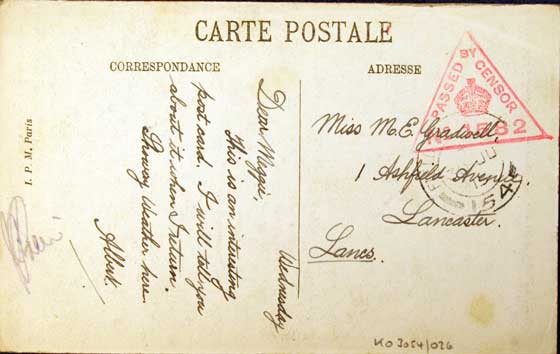 CARTE POSTALE
CORRESPONDANCE
ADRESSE
Wednesday
Dear Maggie,
This is an interesting
post card I will tell you
about it when I return.
Showery Weather here
Albert.
Miss M.E. Gradwell,
1 Ashfield Avenue,
Lancaster.
Lancs.
PASSED BY CENSOR
No 1582
154
I. P. M. Paris
KO 3054/026